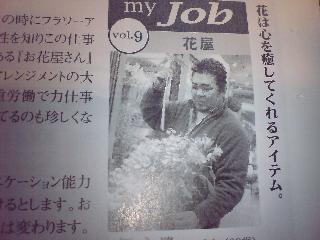 my Job
vol.9
花屋
花は心を癒してくれるアイテム。
の時にフラワーア
性を知りこの仕事
ある『お花屋さん』
アレンジメントの大
重労働で力仕事
てるのも珍しくな
ケーション能力
けるとします。お
は変わります。